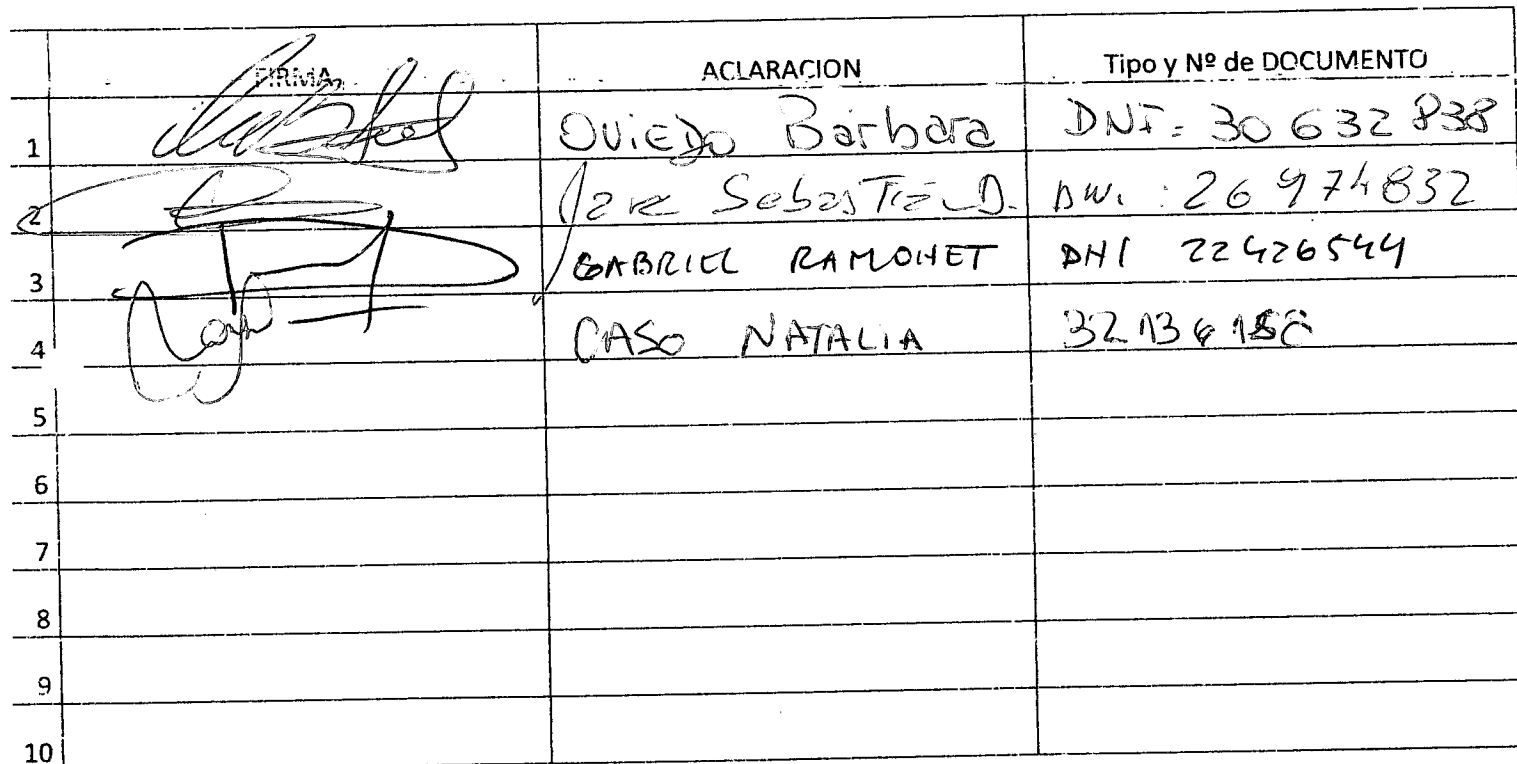 FIRMA ACLARACION Tipo y Nº de DOCUMENTO
1 OVIEDO Barbara DNI: 30 632 838
2 Sebastia D. DNI : 26 974832
3 GABRIEL RAMONET DNI 22426544
4 CASO NATALIA 32136
5
6
7
8
9
10